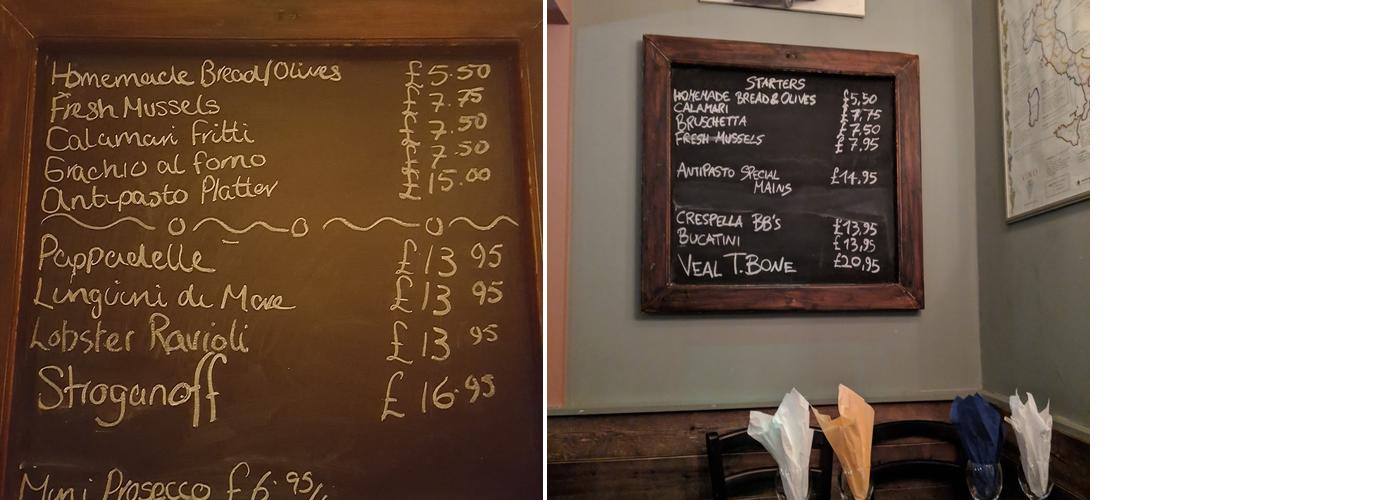 Homemade Bread/Olives £5.50
Fresh Mussels £7.75
Calamari Fritti £7.50
Grachio al forno £7.50
Antipasto Platter £15.00
Pappadelle £13 95
Linguini di Mare £13 95
Lobster Ravioli £13 95
Stroganoff £16.95
Mini Prosecco £6.95
STARTERS
HOMEMADE BREAD & OLIVES £5,50
CALAMARI £7,75
BRUSCHETTA £7.50
FRESH MUSSELS £7.95
ANTIPASTO SPECIAL £14.95
MAINS
CRESPELLA BB'S £13,95
BUCATINI £13,95
VEAL T.BONE £20,95